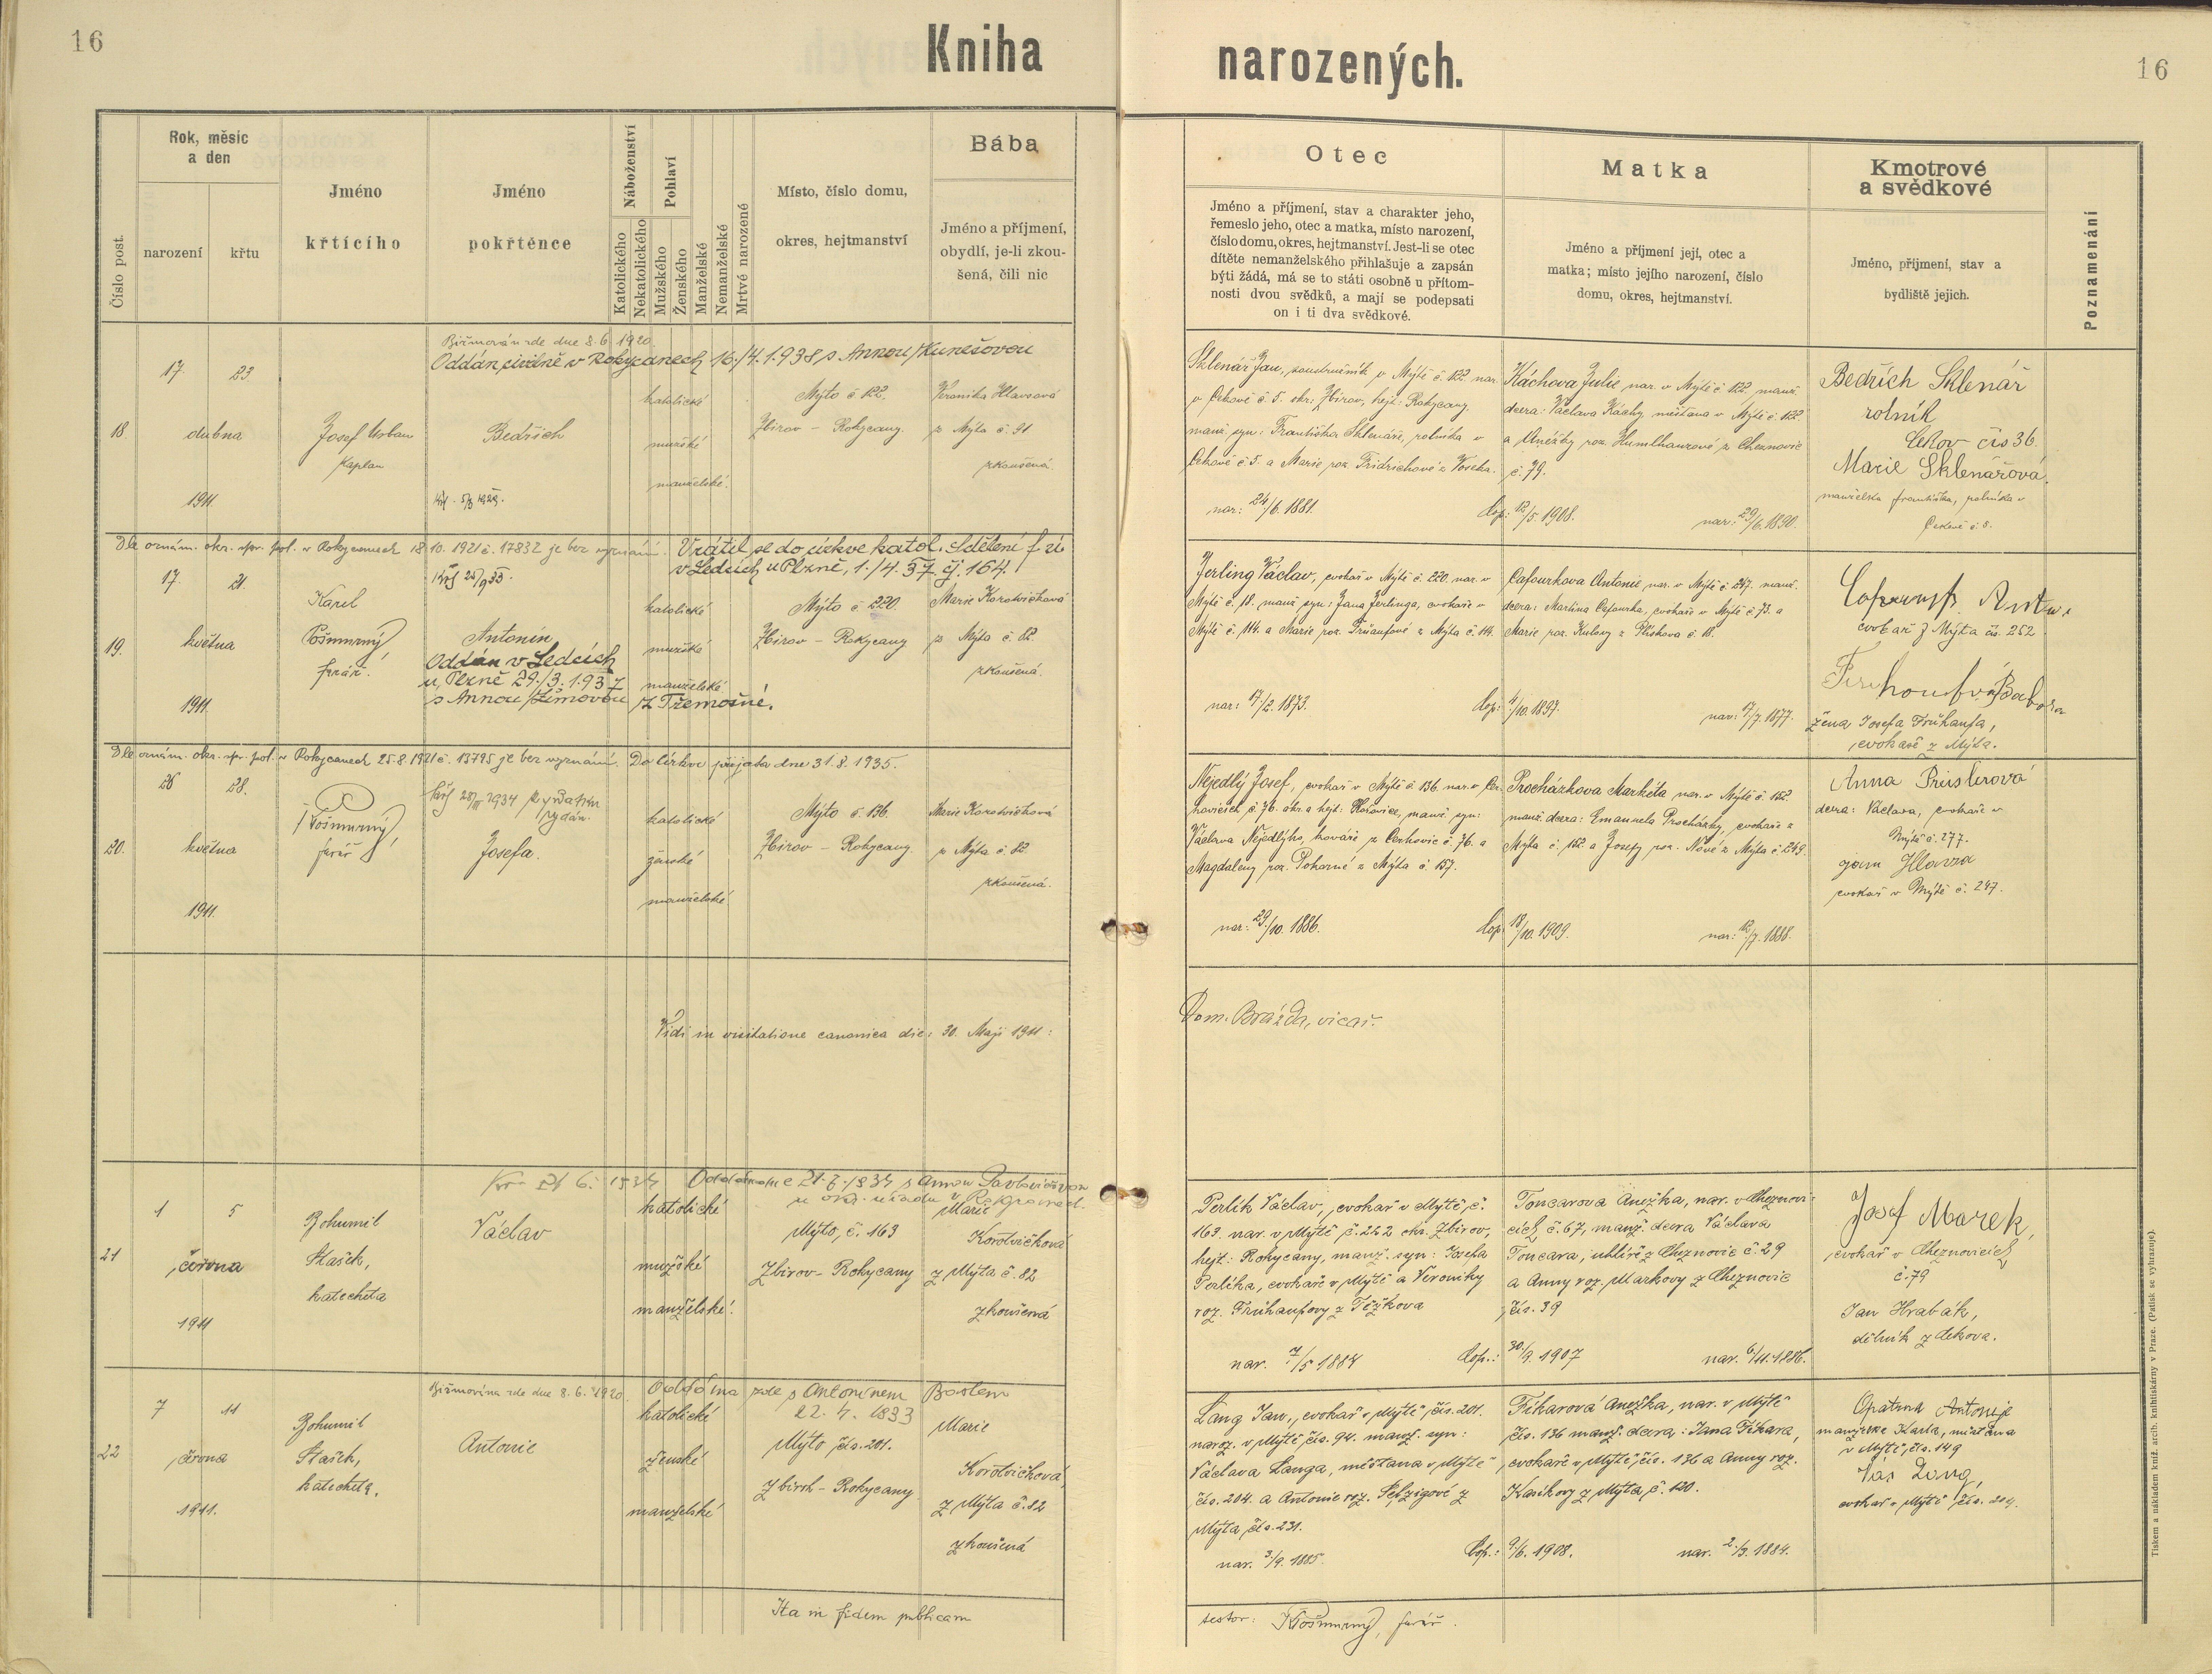 16
Kniha
narozených.
16
Číslo post.
Rok, měsíc
a den
narození
křtu
Jméno
křtícího
Jméno
pokřtěnce
Náboženství
Katolického
Nekatolického
Pohlaví
Mužského
Ženského
Manželské
Nemanželské
Mrtvé narozené
Místo, číslo domu,
okres, hejtmanství
Bába
Jméno a příjmení,
obydlí, je-li zkou-
šená, čili nic
Otec
Jméno a příjmení, stav a charakter jeho,
řemeslo jeho, otec a matka, místo narození,
číslo domu, okres, hejtmanství. Jest-li se otec
dítěte nemanželského přihlašuje a zapsán
býti žádá, má se to státi osobně u přítom-
nosti dvou svědků, a mají se podepsati
on i ti dva svědkové.
Matka
Jméno a příjmení její, otec a
matka; místo jejího narození, číslo
domu, okres, hejtmanství.
Kmotrové
a svědkové
Jméno, příjmení, stav a
bydliště jejich.
Poznamenání
Biřmován zde dne 8.6. 1920.
Oddán civilně v Rokycanech 16./4. 1938 s Annou Kunešovou
18.
17. 23.
dubna
1911.
Josef Urban
kaplan
Bedřich
katolické
mužské
manželské.
Mýto č. 122.
Zbirov – Rokycany.
Veronika Hlavsová
z Mýta č. 91
zkoušená.
Sklenář Jan, soustružník v Mýtě č. 122. nar.
v Cekově č. 5. okr: Zbirov, hejt: Rokycany.
manž. syn: Františka Sklenáře, rolníka v
Cekově č. 5. a Marie roz. Fridrichové z Voseka.
nar: 24/6. 1881.
Káchova Julie nar. v Mýtě č. 122. manž.
dcera: Václava Káchy, měšťana v Mýtě č. 122.
a Anežky roz. Humlhanzové z Cheznovic
č. 79.
Cop: 12/5. 1908.
nar: 29/6. 1890.
Bedřich Sklenář
rolník
Cekov čís 36.
Marie Sklenářová,
manželka Františka, rolníka v
Cekově č. 5.
Dle oznám. okr. spr. pol. v Rokycanech 18. 10. 1921 č. 17832 je bez vyznání. Vrátil se do církve katol. Sdělení f. ú.
v Ledcích u Plzně, 1./4. 37. čj. 164.
19.
17. 21.
května
1911.
Karel
Pošmurný
farář.
Antonín
Oddán v Ledcích
u Plzně 29./3. 1937
s Annou Zímovou z Třemošné.
katolické
mužské
manželské
Mýto č. 220.
Zbirov – Rokycany
Marie Korotvičková
z Mýta č. 82.
zkoušená.
Jerling Václav, cvokař v Mýtě č. 220. nar. v
Mýtě č. 18. manž. syn: Jana Jerlinga, cvokaře v
Mýtě č. 114. a Marie roz. Průaufové z Mýta č. 114.
nar: 17/2. 1873.
Cafourkova Antonie nar. v Mýtě č. 247. manž.
dcera: Martina Cafourka, cvokaře v Mýtě č. 73. a
Marie roz.
Cop: 4/10. 1897.
nar: 17/7. 1877.
cvokař z Mýta čís. 252
žena Josefa Frühaufa,
cvokaře z Mýta.
Dle oznám. okr. spr. pol. v Rokycanech 25. 8. 1921 č. 13795 je bez vyznání. Do Církve přijata dne 31. 8. 1935.
20.
26 28.
května
1911.
Pošmurný,
farář
Josefa.
katolické
ženské
manželské
Mýto č. 136.
Zbirov – Rokycany.
Marie Korotvičková
z Mýta č. 82.
zkoušená.
Nejedlý Josef, cvokař v Mýtě č. 136. nar. v Cer-
hovicích, č. 76. okr. a hejt: Hořovice, manž. syn:
Václava Nejedlýho, kováře z Cerhovic č. 76. a
Magdaleny roz. Pokorné z Mýta č. 157.
nar: 29/10. 1886.
Procházkova Markéta nar. v Mýtě č. 152.
manž. dcera: Emanuela Procházky, cvokaře z
Mýta č. 152. a Josefy roz. Nové z Mýta č. 249.
Cop: 18/10. 1909.
nar: 12/7. 1888.
Anna Preislerová
dcera: Václava, cvokaře v
Mýtě č. 277.
Jan Hlavza
cvokař v Mýtě č. 247.
Vidi in visitatione canonica die: 30. Maji 1911:
Dom. Brázda, vicař.
21
1 5
června
1911
Bohumil
Stašek,
katecheta
Václav
katolické
mužské
manželské.
Mýto, č. 163
Zbirov – Rokycany
Marie
Korotvičková
z Mýta č. 82
zkoušená
Perlík Václav, cvokař v Mýtě č.
163. nar. v Mýtě č. 242 okr. Zbirov,
hejt: Rokycany, manž. syn: Josefa
Perlíka, cvokaře v Mýtě a Veroniky
roz. Frühaufovy z Těškova
nar. 7/5 1884
Toncarova Anežka, nar. v Cheznovi-
cích, č. 67, manž. dcera Václava
Toncara, uhlíře z Cheznovic č. 29
a Anny roz. Markovy z Cheznovic
čís. 39
Cop.: 30/9. 1907
nar. 6/11. 1886.
Josef Marek,
cvokař v Cheznovicích
č. 79
Jan Hrabák,
dělník z Cekova.
Biřmována zde dne 8. 6. 1920. Oddána zde s Antonínem
22. 4. 1933
22
7 11
června
1911.
Bohumil
Stašek,
katecheta.
Antonie
katolické
ženské
manželské
Mýto, čís. 201.
Zbiroh – Rokycany
Marie
Korotvičková,
z Mýta č. 82
zkoušená
Lang Jan, cvokař v Mýtě, čís. 201.
naroz. v Mýtě, čís. 94. manž. syn:
Václava Langa, měšťana v Mýtě
čís. 204. a Antonie roz. Selzigové z
Mýta, čís. 231.
nar. 3/9. 1885.
Fikarová Anežka, nar. v Mýtě
čís. 136 manž. dcera: Jana Fikara,
cvokaře v Mýtě, čís. 136 a Anny roz.
Kasíkovy z Mýta, č. 120.
Cop.: 9/6. 1908.
nar. 2./3. 1884.
Opatrná Antonie
manželka Karla, měšťana
v Mýtě, čís. 149
Vác Lang,
cvokař v Mýtě, čís. 204.
Ita in fidem publicam
testor: Pošmurný, farář.
Tiskem a nákladem kníž. arcib. knihtiskárny v Praze. (Patisk se vyhrazuje).